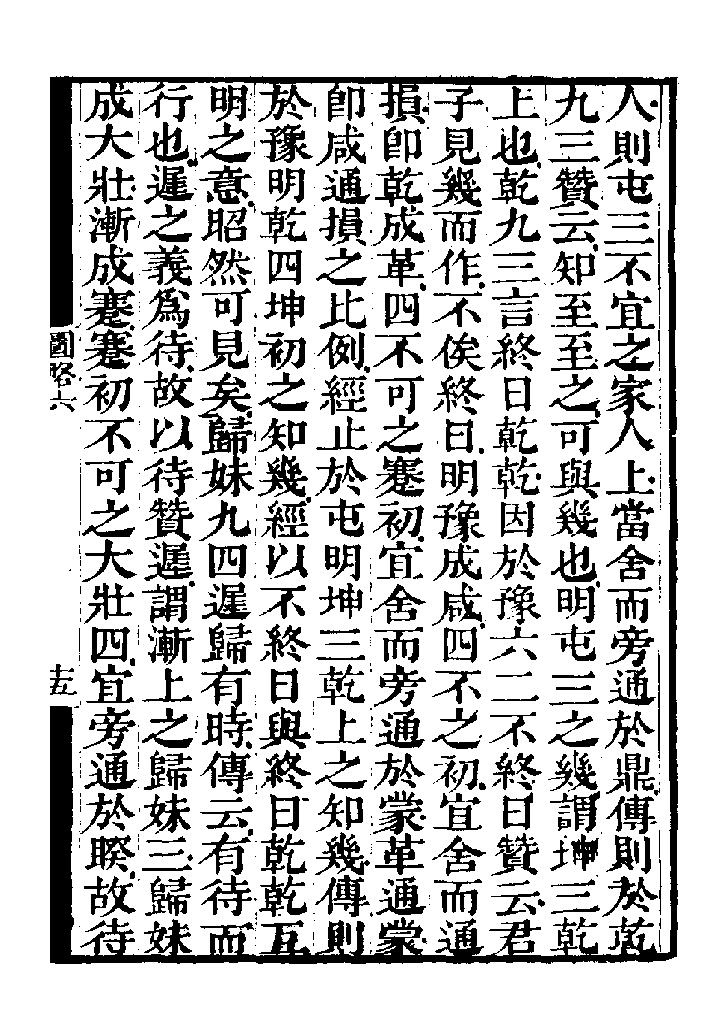 人則屯三不宜之家人上當舍而旁通於鼎傳則於乾
九三贊云知至至之可與幾也明屯三之幾謂坤三乾
上也乾九三言終日乾乾因於豫六二不終日贊云君
子見幾而作不俟終日明豫成咸四不之初宜舍而通
損卽乾成革四不可之蹇初宜舍而旁通於蒙革通蒙
卽咸通損之比例經止於屯明坤三乾上之知幾傳則
於豫明乾四坤初之知幾經以不終日與終日乾乾互
明之意昭然可見矣歸妹九四遲歸有時傳云有待而
行也遲之義爲待故以待贊遲謂漸上之歸妹三歸妹
成大壯漸成蹇蹇初不可之大壯四宜旁通於睽故待
圖略六
十五